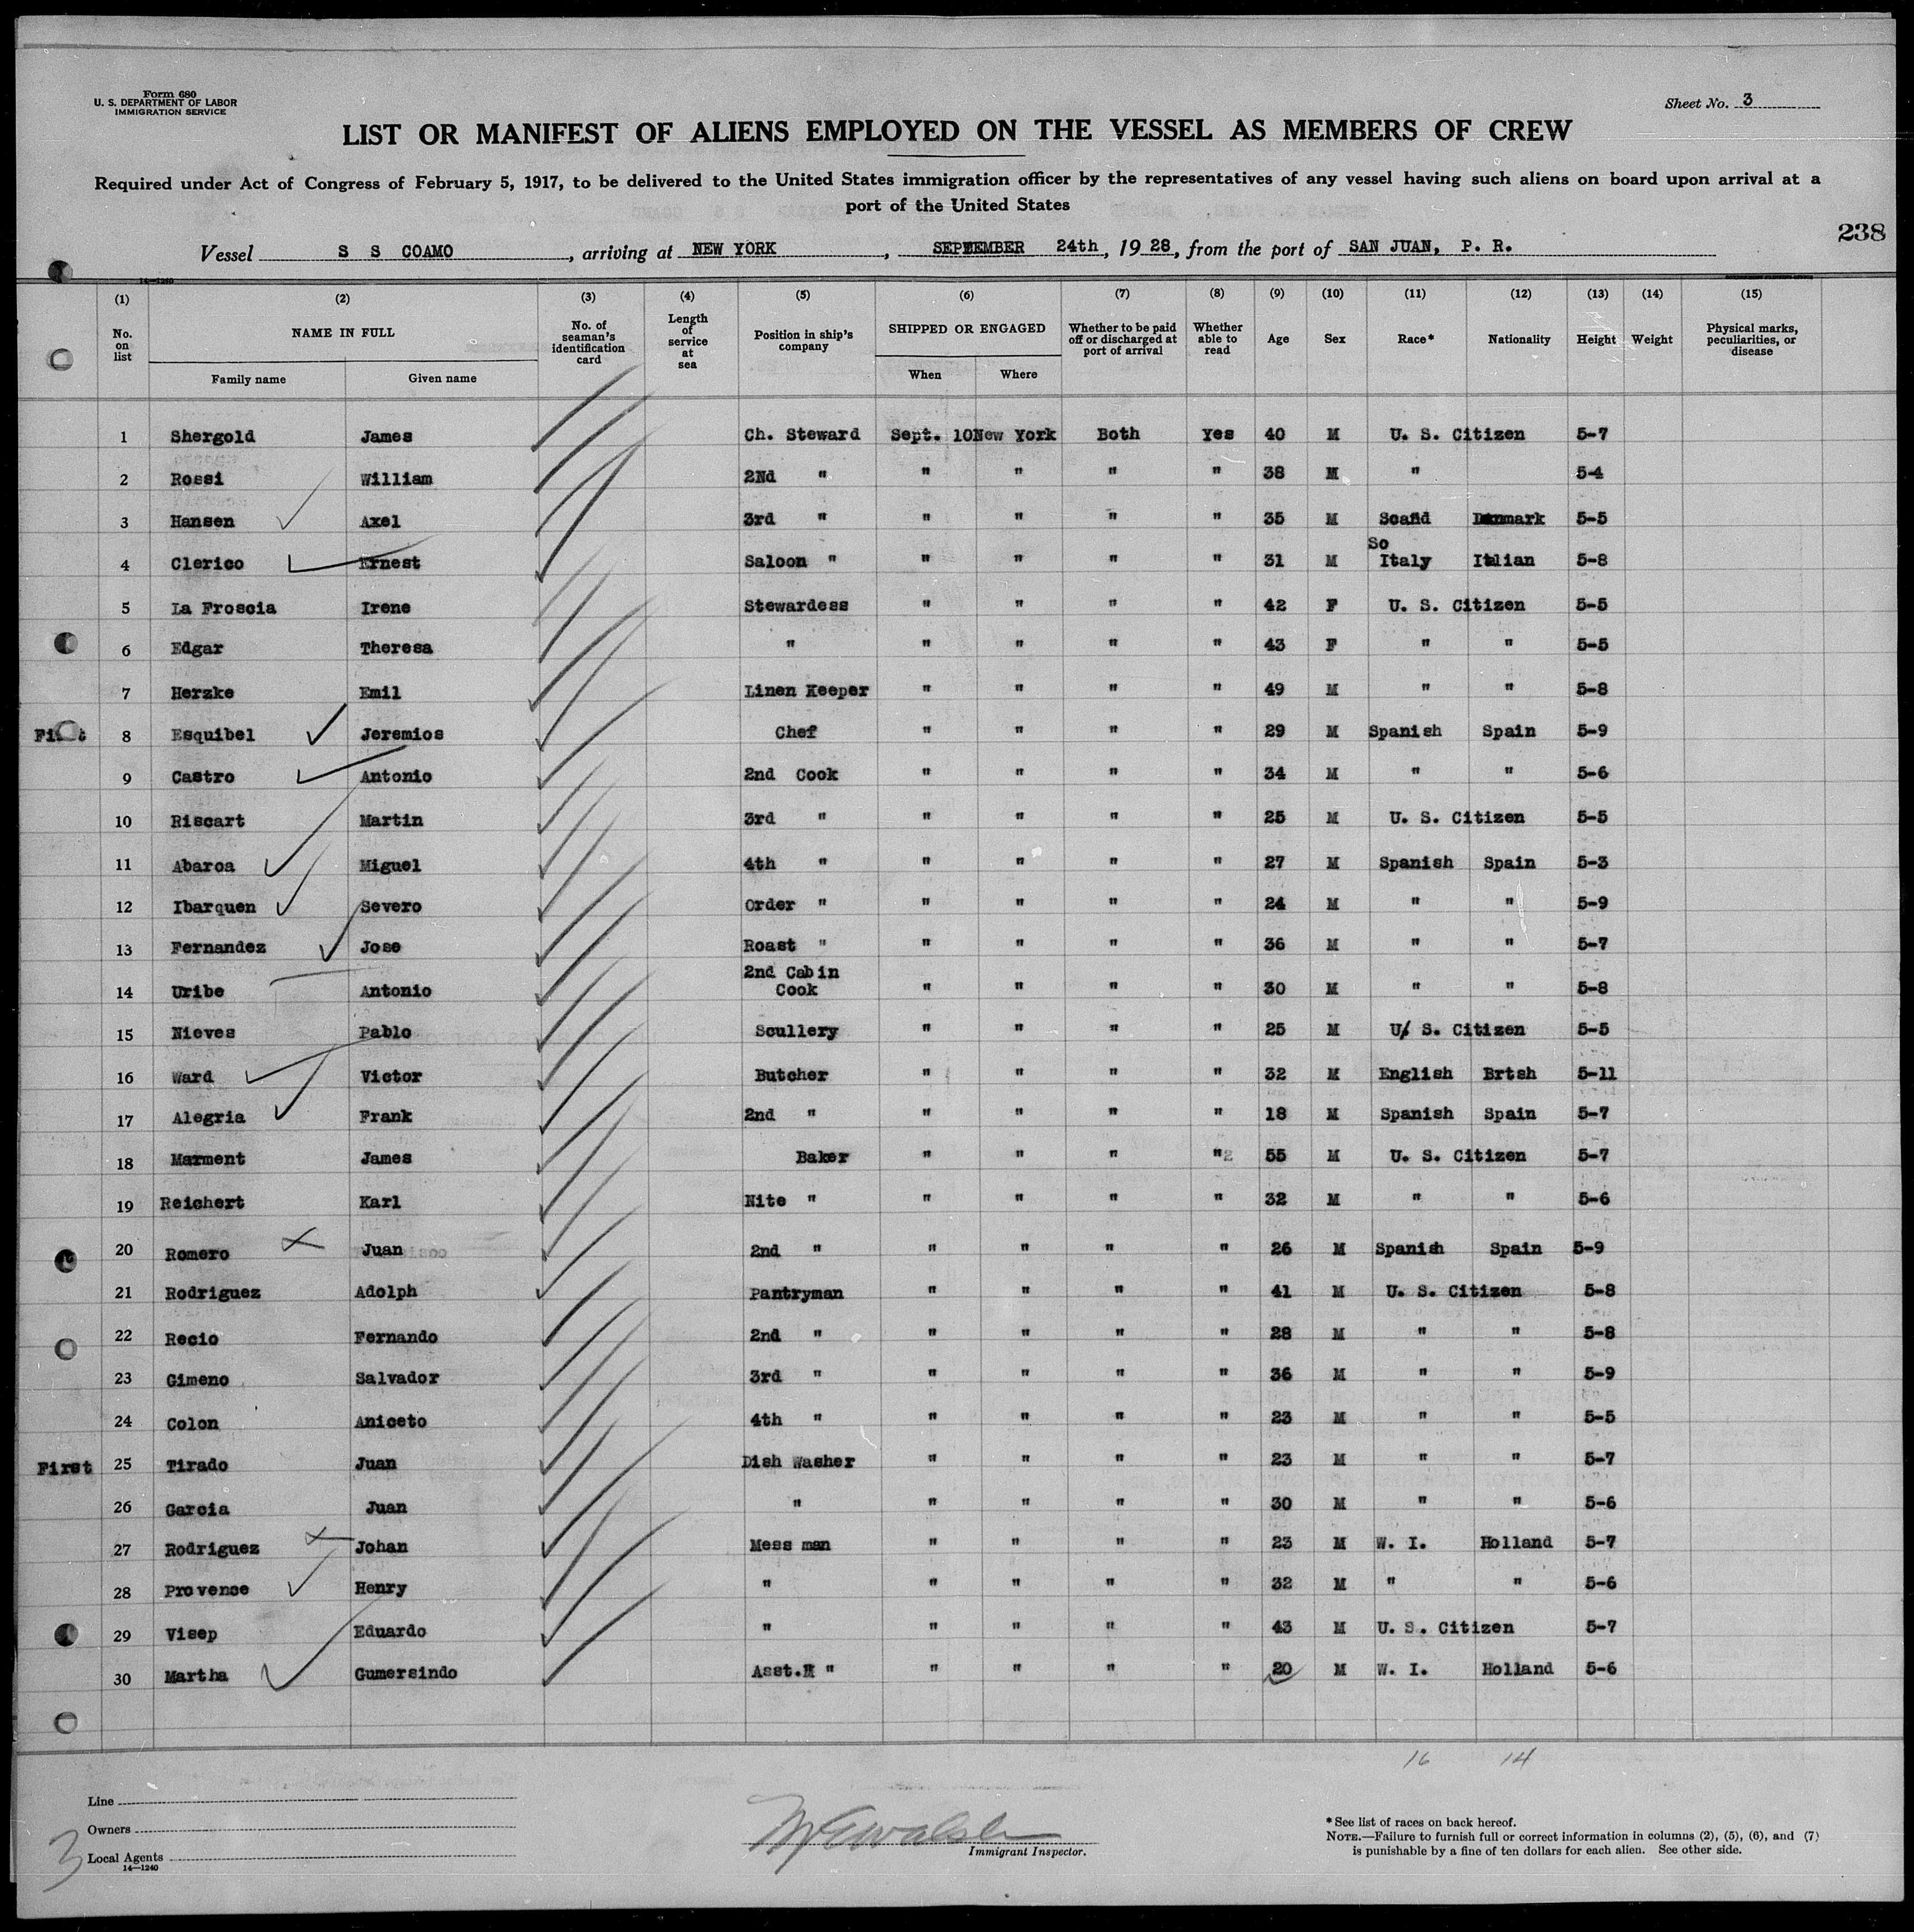 Form 680
U. S. DEPARTMENT OF LABOR
IMMIGRATION SERVICE
Sheet No. 3
LIST OR MANIFEST OF ALIENS EMPLOYED ON THE VESSEL AS MEMBERS OF CREW
Required under Act of Congress of February 5, 1917, to be delivered to the United States immigration officer by the representatives of any vessel having such aliens on board upon arrival at a
port of the United States
238
Vessel S S COAMO, arriving at NEW YORK, SEPTEMBER 24th, 1928, from the port of SAN JUAN, P. R.
14—1240
(1) (2) (3) (4) (5) (6) (7) (8) (9) (10) (11) (12) (13) (14) (15)
No. on list NAME IN FULL Family name Given name No. of seaman's identification card Length of service at sea Position in ship's company SHIPPED OR ENGAGED When Where Whether to be paid off or discharged at port of arrival Whether able to read Age Sex Race* Nationality Height Weight Physical marks, peculiarities, or disease
1 Shergold James Ch. Steward Sept. 10 New York Both Yes 40 M U. S. Citizen 5-7
2 Rossi William 2Nd " " " " " 38 M " 5-4
3 Hansen Axel 3rd " " " " " 35 M Scand Denmark 5-5
4 Clerico Ernest Saloon " " " " " 31 M So Italy Italian 5-8
5 La Froscia Irene Stewardess " " " " 42 F U. S. Citizen 5-5
6 Edgar Theresa " " " " " 43 F " " 5-5
7 Herzke Emil Linen Keeper " " " " 49 M " " 5-8
First 8 Esquibel Jeremios Chef " " " " 29 M Spanish Spain 5-9
9 Castro Antonio 2nd Cook " " " " 34 M " " 5-6
10 Riscart Martin 3rd " " " " " 25 M U. S. Citizen 5-5
11 Abaroa Miguel 4th " " " " " 27 M Spanish Spain 5-3
12 Ibarquen Severo Order " " " " " 24 M " " 5-9
13 Fernandez Jose Roast " " " " " 36 M " " 5-7
14 Uribe Antonio 2nd Cabin Cook " " " " 30 M " " 5-8
15 Nieves Pablo Scullery " " " " 25 M U/ S. Citizen 5-5
16 Ward Victor Butcher " " " " 32 M English Brtsh 5-11
17 Alegria Frank 2nd " " " " " 18 M Spanish Spain 5-7
18 Marment James Baker " " " "2 55 M U. S. Citizen 5-7
19 Reichert Karl Nite " " " " " 32 M " " 5-6
20 Romero Juan 2nd " " " " " 26 M Spanish Spain 5-9
21 Rodriguez Adolph Pantryman " " " " 41 M U. S. Citizen 5-8
22 Recio Fernando 2nd " " " " " 28 M " " 5-8
23 Gimeno Salvador 3rd " " " " " 36 M " " 5-9
24 Colon Aniceto 4th " " " " " 23 M " " 5-5
First 25 Tirado Juan Dish Washer " " " " 23 M " " 5-7
26 Garcia Juan " " " " " 30 M " " 5-6
27 Rodriguez Johan Mess man " " " " 23 M W. I. Holland 5-7
28 Provence Henry " " " " " 32 M " " 5-6
29 Visep Eduardo " " " " " 43 M U. S. Citizen 5-7
30 Martha Gumersindo Asst. " " " " " 20 M W. I. Holland 5-6
16 14
Line
Owners
Local Agents
14—1240
3
Immigrant Inspector.
* See list of races on back hereof.
NOTE.—Failure to furnish full or correct information in columns (2), (5), (6), and (7)
is punishable by a fine of ten dollars for each alien. See other side.